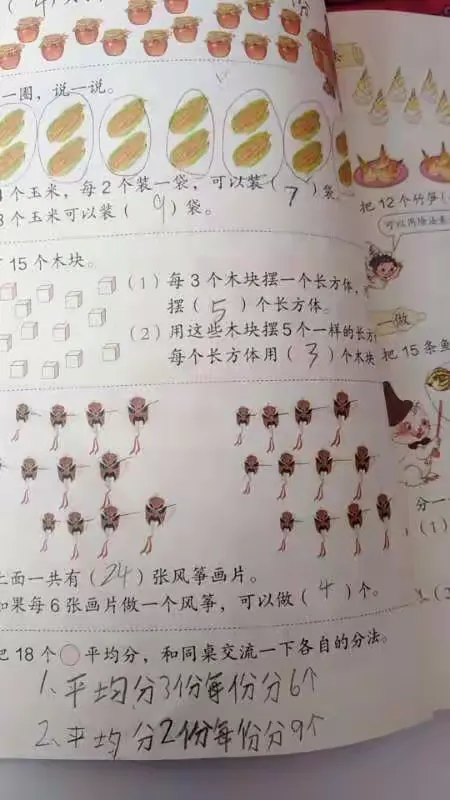 一圈，说一说。
个玉米，每2个装一袋，可以装（7）袋
8个玉米可以装（9）袋。
15个木块。
（1）每3个木块摆一个长方体，
摆（5）个长方体。
（2）用这些木块摆5个一样的长方
每个长方体用（3）个木块
上面一共有（24）张风筝画片。
如果每6张画片做一个风筝，可以做（4）个。
把18个○平均分，和同桌交流一下各自的分法。
1、平均分3份每份分6个
2、平均分2份每份分9个
把12个竹笋（
可以用除法来
一做
把15条鱼
分一
（1）